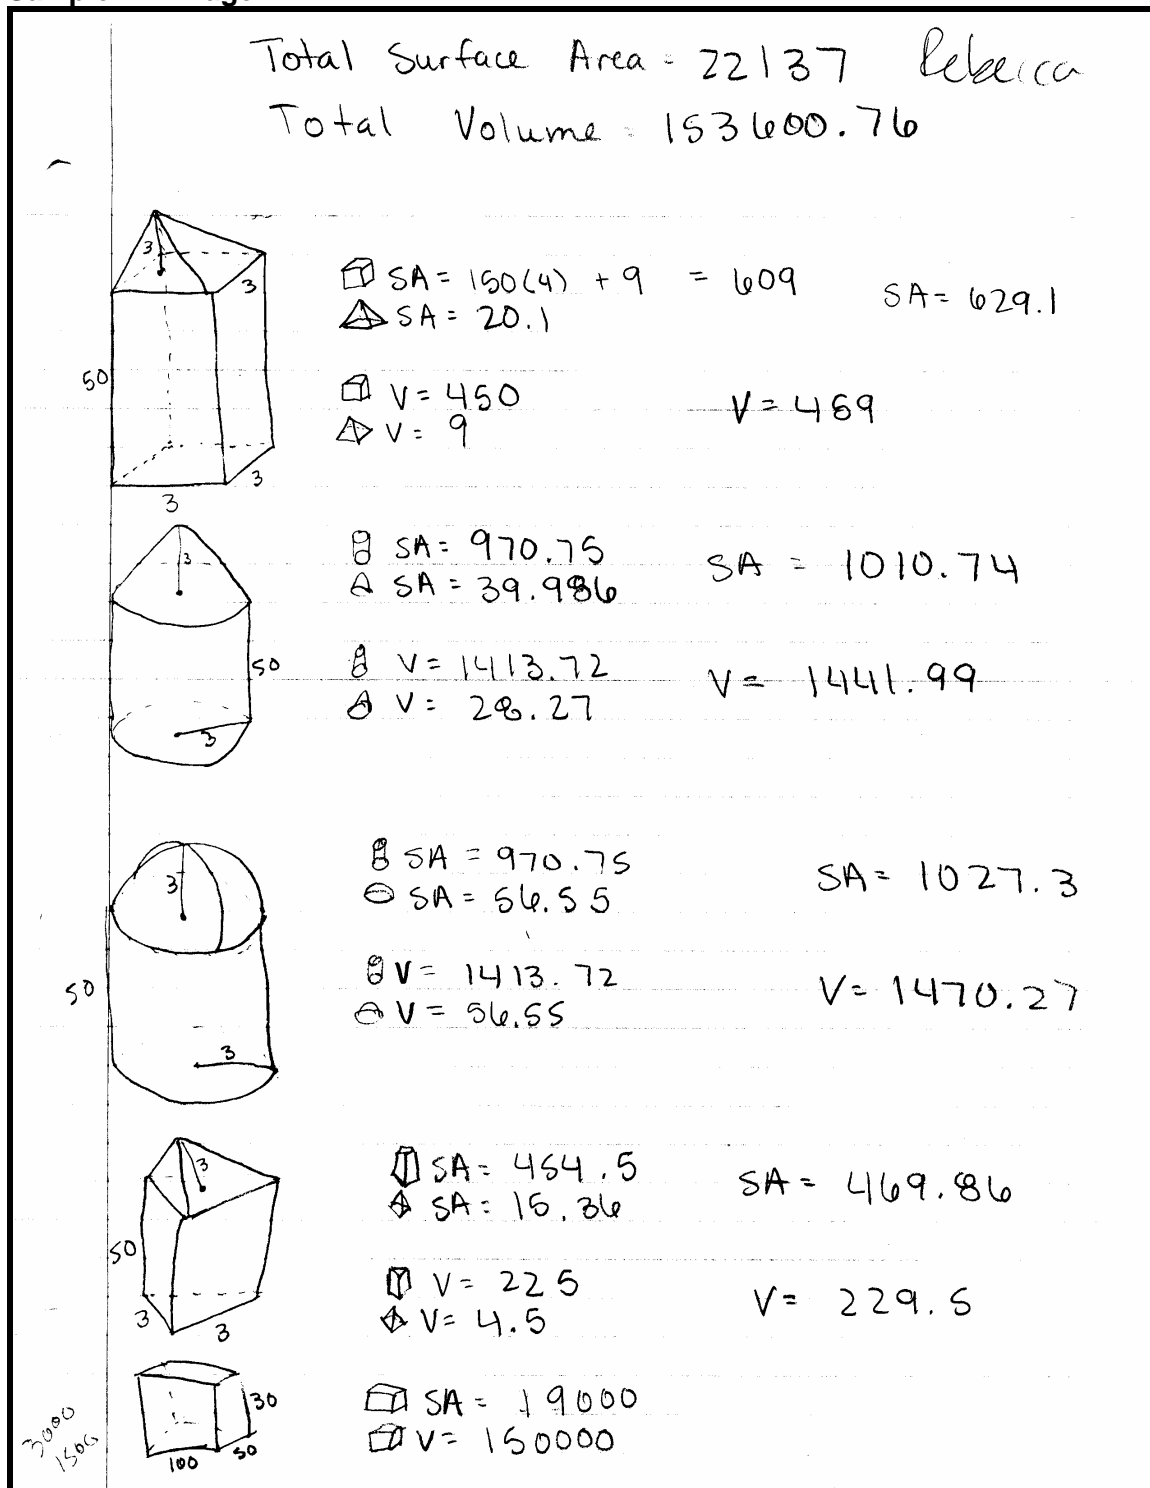 Total Surface Area = 22137 Rebecca
Total Volume = 153600.76
3
3
50
3
3
SA = 150(4) + 9 = 609
SA = 20.1
SA = 629.1
V = 450
V = 9
V = 459
3
50
3
SA = 970.75
SA = 39.986
SA = 1010.74
V = 1413.72
V = 28.27
V = 1441.99
3
50
3
SA = 970.75
SA = 56.55
SA = 1027.3
V = 1413.72
V = 56.55
V = 1470.27
3
50
3
3
SA = 454.5
SA = 15.36
SA = 469.86
V = 225
V = 4.5
V = 229.5
30
50
100
SA = 19000
V = 150000
3000
1500